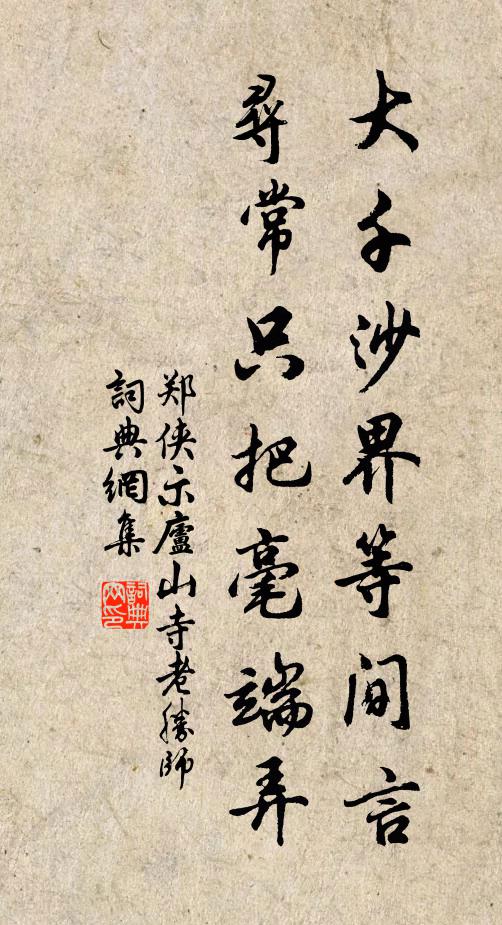 大千沙界等间言
尋常只把毫端弄
郑侠示廬山寺老勝師
詞典網集
詞典网印